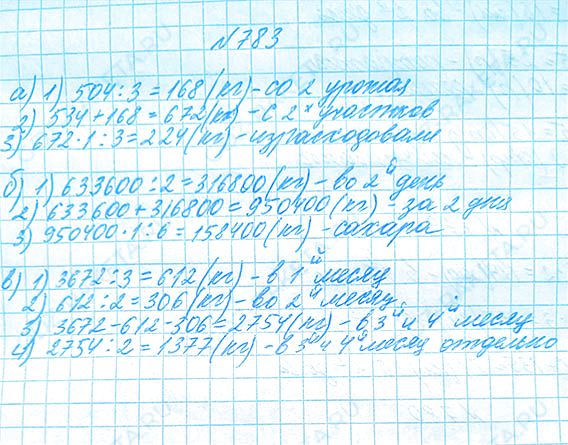 №783
а) 1) 504:3=168(кг)-со 2 урожая
2) 534+168=672(кг)-с 2х участков
3) 672·1:3=224(кг)-израсходовали
б) 1) 633600:2=316800(кг)-во 2й день
2) 633600+316800=950400(кг) за 2 дня
3) 950400·1:6=158400(кг)-сахара
в) 1) 3672:3=612(кг)-в 1й месяц
2) 612:2=306(кг)-во 2й месяц
3) 3672-612-306=2754(кг)-в 3й и 4й месяц
4) 2754:2=1377(кг)-в 3й и 4й месяц отдельно